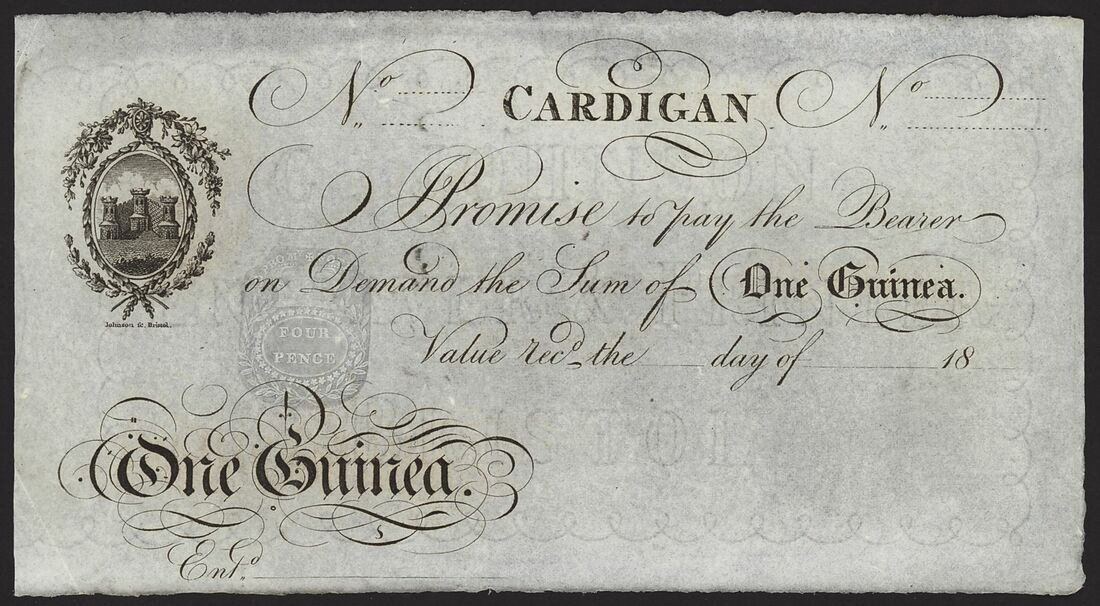 No CARDIGAN No
I Promise to pay the Bearer
on Demand the Sum of One Guinea.
Johnson sc. Bristol.
FOUR
PENCE
Value recd. the day of 18
One Guinea.
Entd.